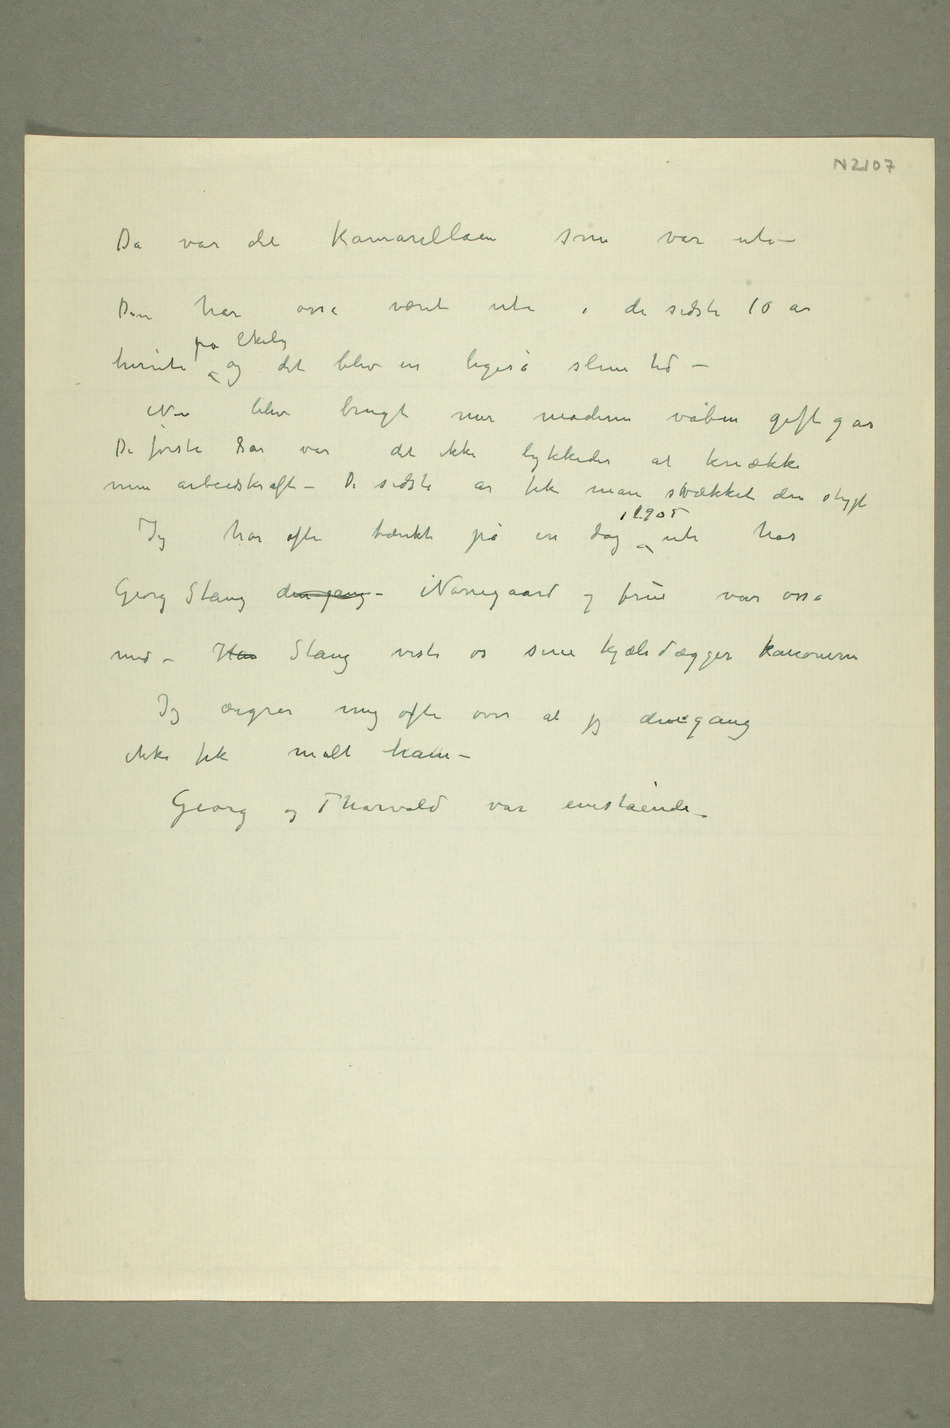 N 2107
Da var det Kamarillaen som var ute –
Den har også været ute i de sidste 10 år
herute på Ekely og det blev en ligeså slem tid –
Nu blev brugt mer moderne våben giftgas
De første 8 år var det ikke lykkedes at knække
min arbeidskraft – De sidste år fik man svækket den stygt
Jeg har ofte tænkt på en dag i 1905 ute hos
Georg Stang den gang – Nørregaard og frue var også
med – Han Stang viste os sine kjæledægger kanonerne
Jeg ærgrer mig ofte over at jeg dengang
ikke fik malt ham –
Georg og Thorvald var enestående –